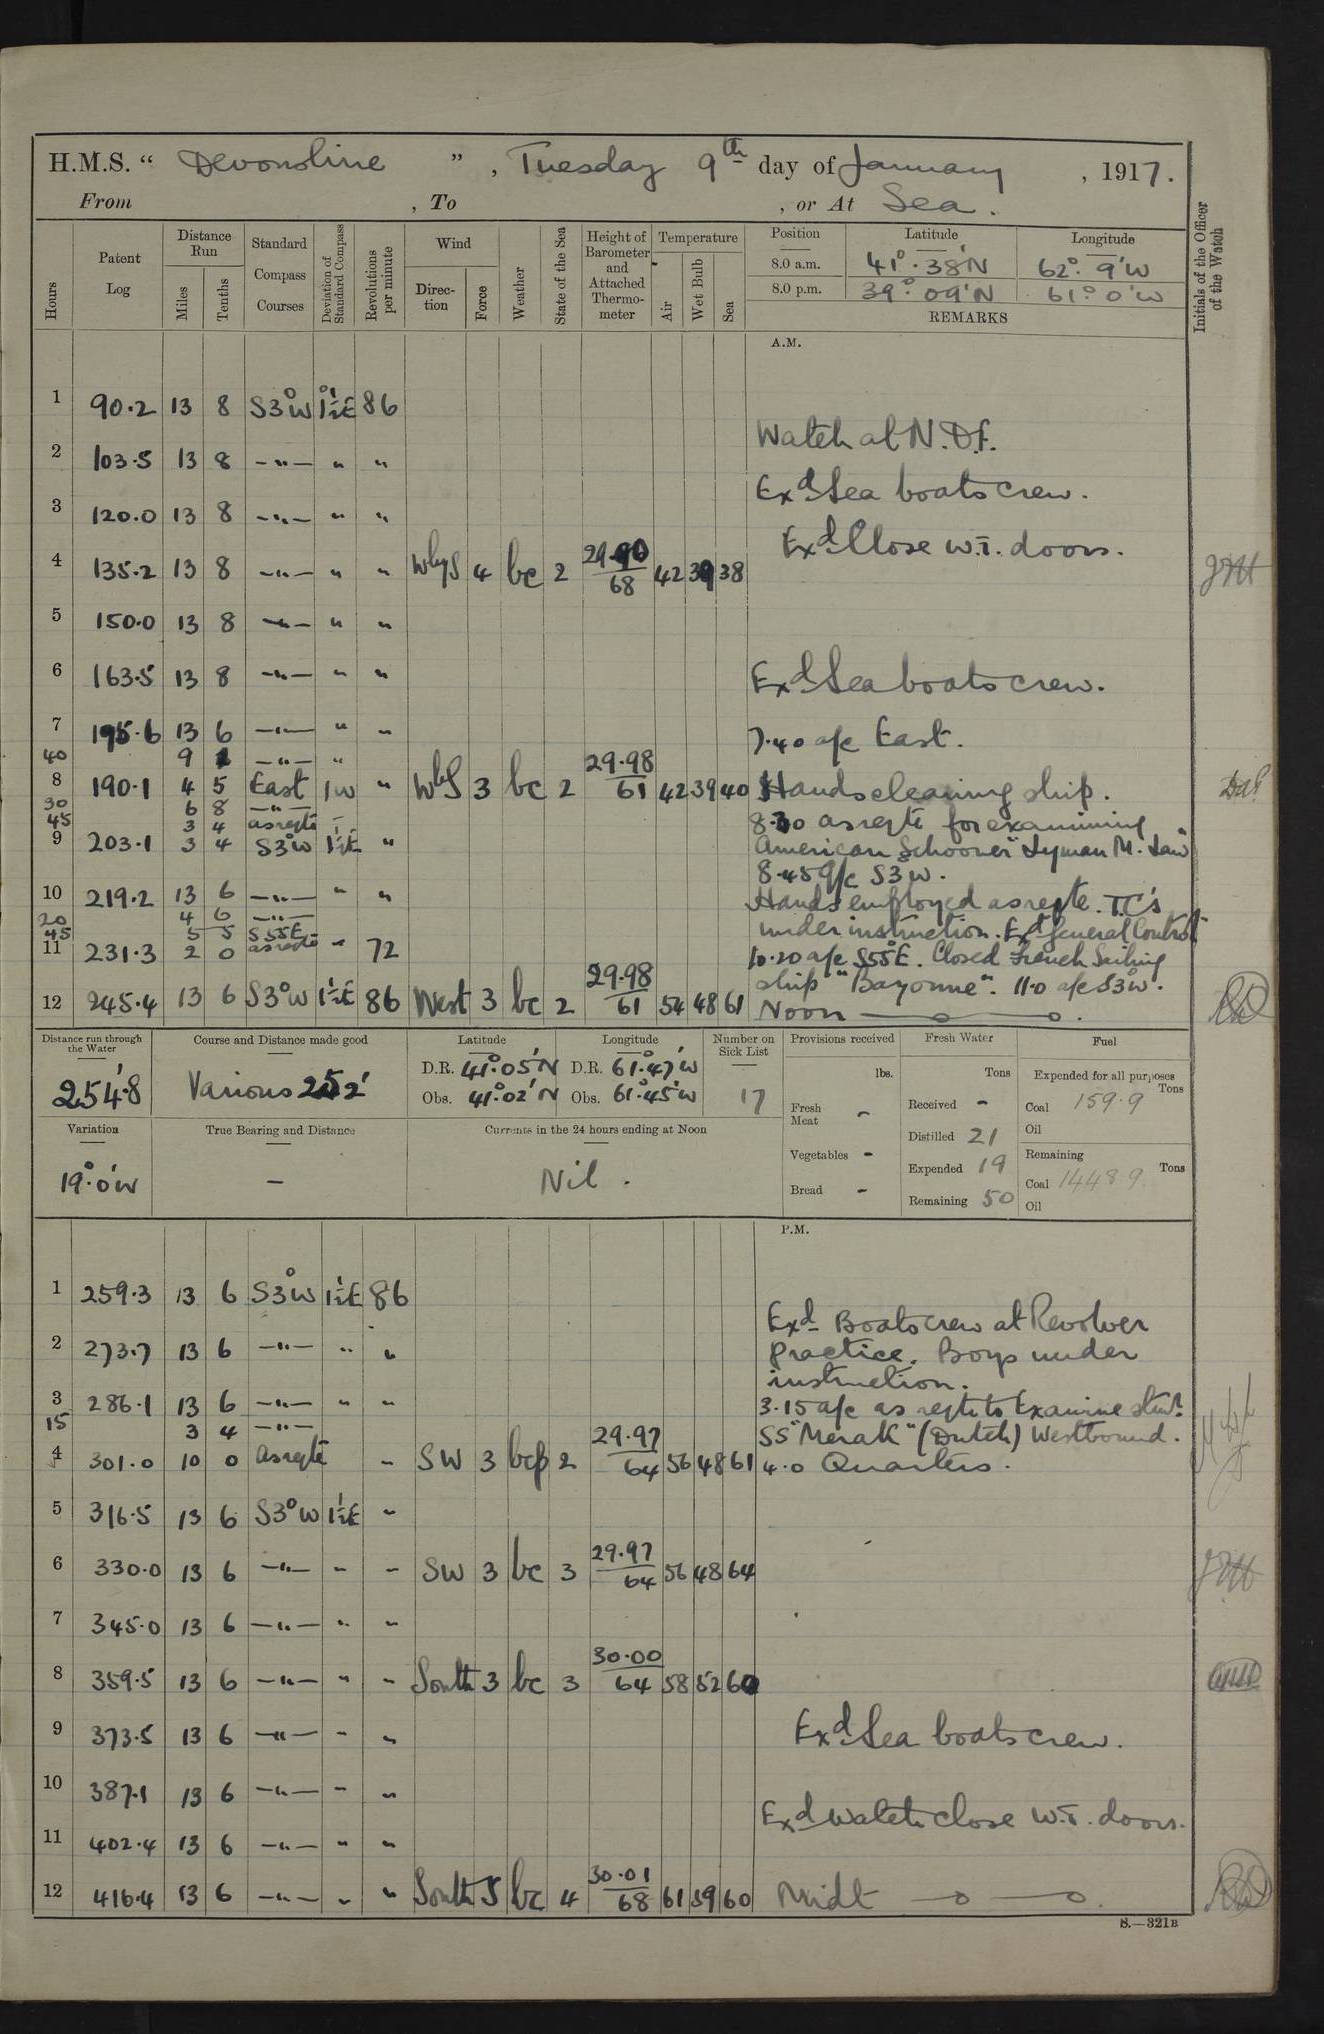 H.M.S. “ Devonshire ” , Tuesday 9th day of January , 1917.
From , To , or At Sea.
Hours Patent Log Distance Run Miles Tenths Standard Compass Courses Deviation of Standard Compass Revolutions per minute Wind Direction Force Weather State of the Sea Height of Barometer and Attached Thermometer Temperature Air Wet Bulb Sea Position Latitude Longitude Initials of the Officer of the Watch
8.0 a.m. 41°.38'N 62°.9'W
8.0 p.m. 39°.09'N 61°0'W
REMARKS
A.M.
1 90.2 13 8 S3°W 1½E 86
Watch at N.D.F.
2 103.5 13 8 —"— " "
Exd Sea boats crew.
3 120.0 13 8 —"— " "
Exd Close W.T. doors.
4 135.2 13 8 —"— " " WbyS 4 bc 2 29.90 68 42 39 38
5 150.0 13 8 —"— " "
6 163.5 13 8 —"— " " Exd Sea boats crew.
7 195.6 13 6 —"— " " 7.40 a/c East.
40 9 —"— "
8 190.1 4 5 East 1W " WbS 3 bc 2 29.98 61 42 39 40 Hands cleaning ship.
30 6 8 —"—
45 3 4 as reqte — 8.30 as reqte for examining
9 203.1 3 4 S3°W 1½E " American Schooner "Lyman M. Law"
8.45 a/c S3W.
10 219.2 13 6 —"— " " Hands employed as reqte. T.C's
20 4 6 —"— under instruction. Exd General Control
45 5 5 S55E
11 231.3 2 0 as reqte " 72 10.20 a/c S55°E. Closed French Sailing
ship "Bayonne". 11.0 a/c S3°W.
12 245.4 13 6 S3°W 1½E 86 West 3 bc 2 29.98 61 54 48 61 Noon
Distance run through the Water Course and Distance made good Latitude Longitude Number on Sick List Provisions received Fresh Water Fuel
254.8 Various 252' D.R. 41°.05'N D.R. 61°.47'W
Obs. 41°.02'N Obs. 61°.45'W 17
lbs. Tons Expended for all purposes Tons
Fresh Meat - Received - Coal 159.9
Oil
Variation True Bearing and Distance Currents in the 24 hours ending at Noon Distilled 21
19°.0'W - Nil. Vegetables - Expended 19 Remaining Tons
Coal 1448.9
Bread - Remaining 50 Oil
P.M.
1 259.3 13 6 S3°W 1½E 86
Exd Boats crew at Revolver
2 273.7 13 6 —"— " " practice. Boys under
instruction.
3 286.1 13 6 —"— " " 3.15 a/c as reqte to Examine
15 3 4 —"— SS "Merak" (Dutch) Westbound.
4 301.0 10 0 as reqte " SW 3 bcp 2 29.97 64 56 48 61 4.0 Quarters.
5 316.5 13 6 S3°W 1½E "
6 330.0 13 6 —"— " " SW 3 bc 3 29.97 64 56 48 64
7 345.0 13 6 —"— " "
8 359.5 13 6 —"— " " South 3 bc 3 30.00 64 58 52 60
9 373.5 13 6 —"— " " Exd Sea boats crew.
10 387.1 13 6 —"— " "
Exd Watch close W.T. doors.
11 402.4 13 6 —"— " "
12 416.4 13 6 —"— " " South 5 bc 4 30.01 68 61 59 60 Midt
S.—321B